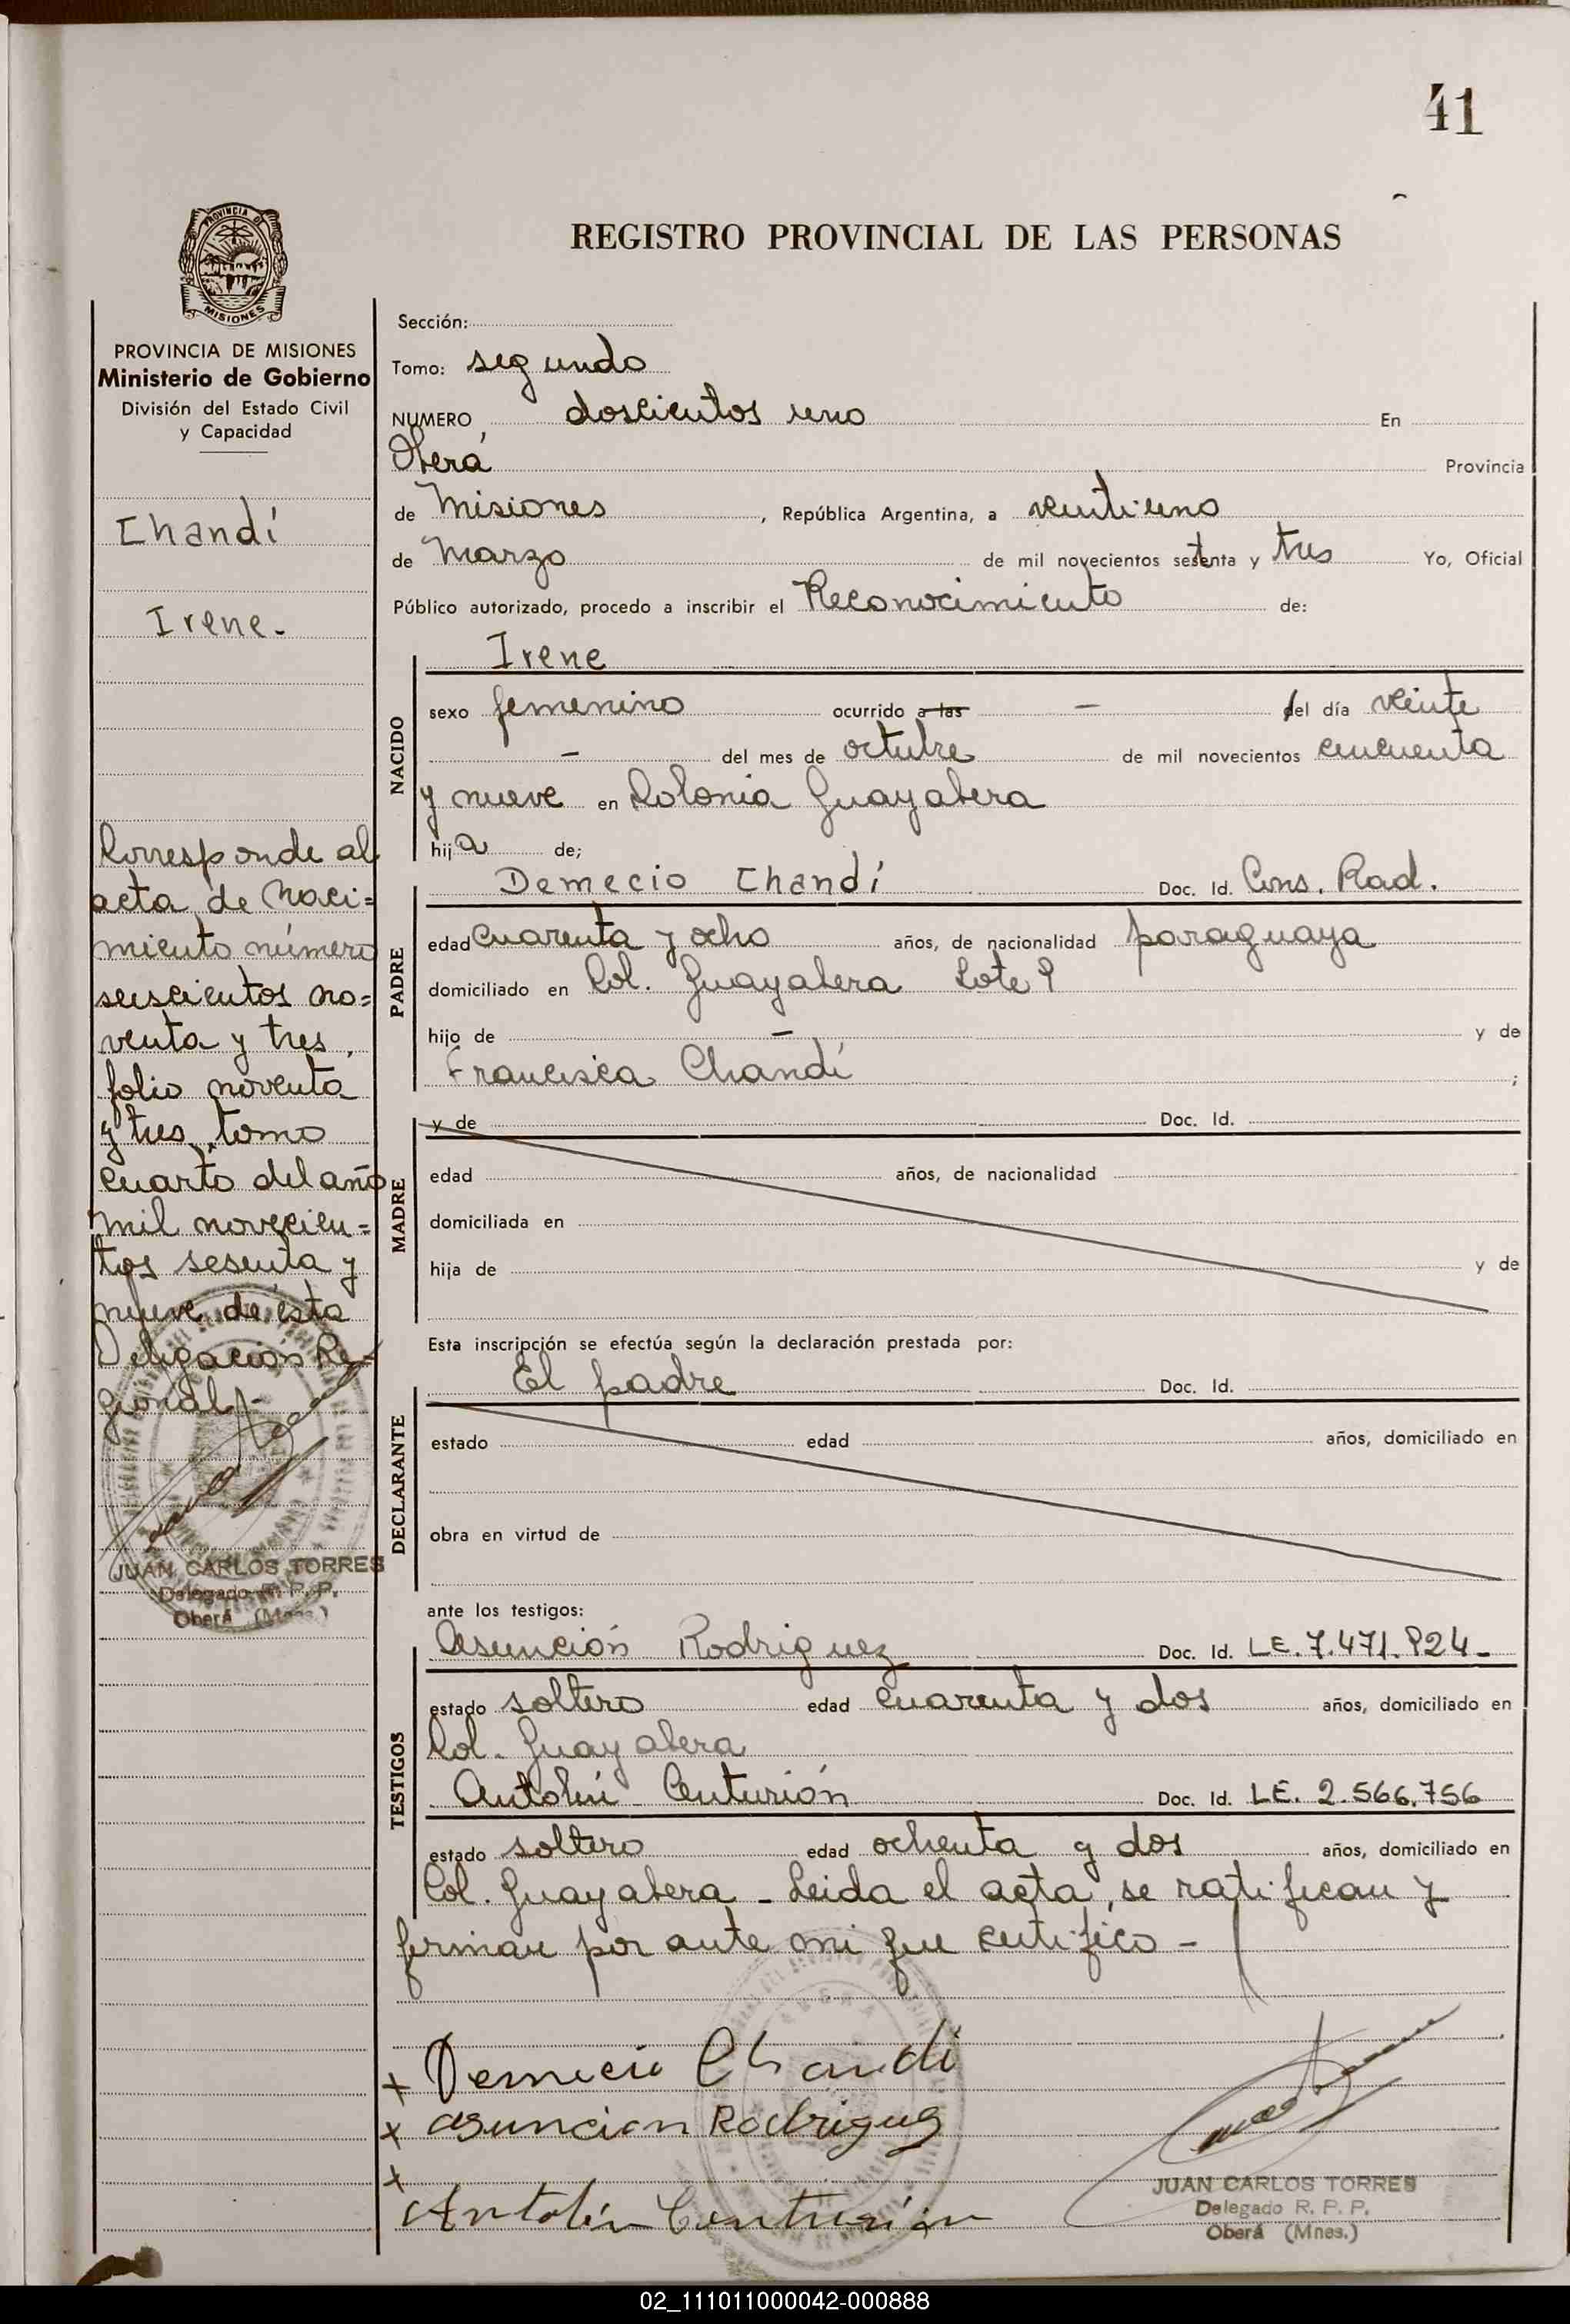 41
REGISTRO PROVINCIAL DE LAS PERSONAS
PROVINCIA DE
MISIONES
PROVINCIA DE MISIONES
Ministerio de Gobierno
División del Estado Civil
y Capacidad
Chandí
Irene.
Corresponde al
acta de naci=
miento número
seiscientos no=
venta y tres,
folio noventa
y tres, tomo
cuarto del año
mil novecien=
tos sesenta y
nueve de esta
Delegación Re=
gional.-
JUAN CARLOS TORRES
Delegado R. P. P.
Oberá (Mnes.)
Sección:
Tomo: segundo
NUMERO doscientos uno En
Oberá Provincia
de Misiones, República Argentina, a veintiuno
de Marzo de mil novecientos setenta y tres Yo, Oficial
Público autorizado, procedo a inscribir el Reconocimiento de:
Irene
NACIDO
sexo femenino ocurrido a las - del día veinte
- del mes de octubre de mil novecientos cincuenta
y nueve en Colonia Guayabera
hija de;
Demecio Chandí Doc. Id. Cons. Rad.
PADRE
edad cuarenta y ocho años, de nacionalidad paraguaya
domiciliado en Col. Guayabera Lote
hijo de - y de
Francisca Chandí ;
MADRE
y de Doc. Id.
edad años, de nacionalidad
domiciliada en
hija de y de
Esta inscripción se efectúa según la declaración prestada por:
El padre Doc. Id.
DECLARANTE
estado edad años, domiciliado en
obra en virtud de
ante los testigos:
Asunción Rodriguez Doc. Id. LE. 7.471.924-
TESTIGOS
estado soltero edad cuarenta y dos años, domiciliado en
Col. Guayabera
Antolín Centurión Doc. Id. LE. 2.566.756
estado soltero edad ochenta y dos años, domiciliado en
Col. Guayabera - Leida el acta, se ratifican y
firman por ante mi que certifico -
x Demecio Chandi
x asuncion Rodriguez
x
Antolín Centurión
JUAN CARLOS TORRES
Delegado R. P. P.
Oberá (Mnes.)
02_111011000042-000888